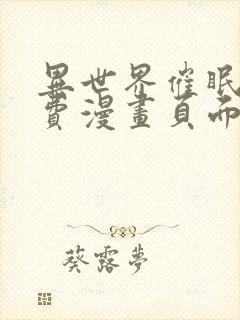 異世界催眠
費漫畫頁面
葵露夢